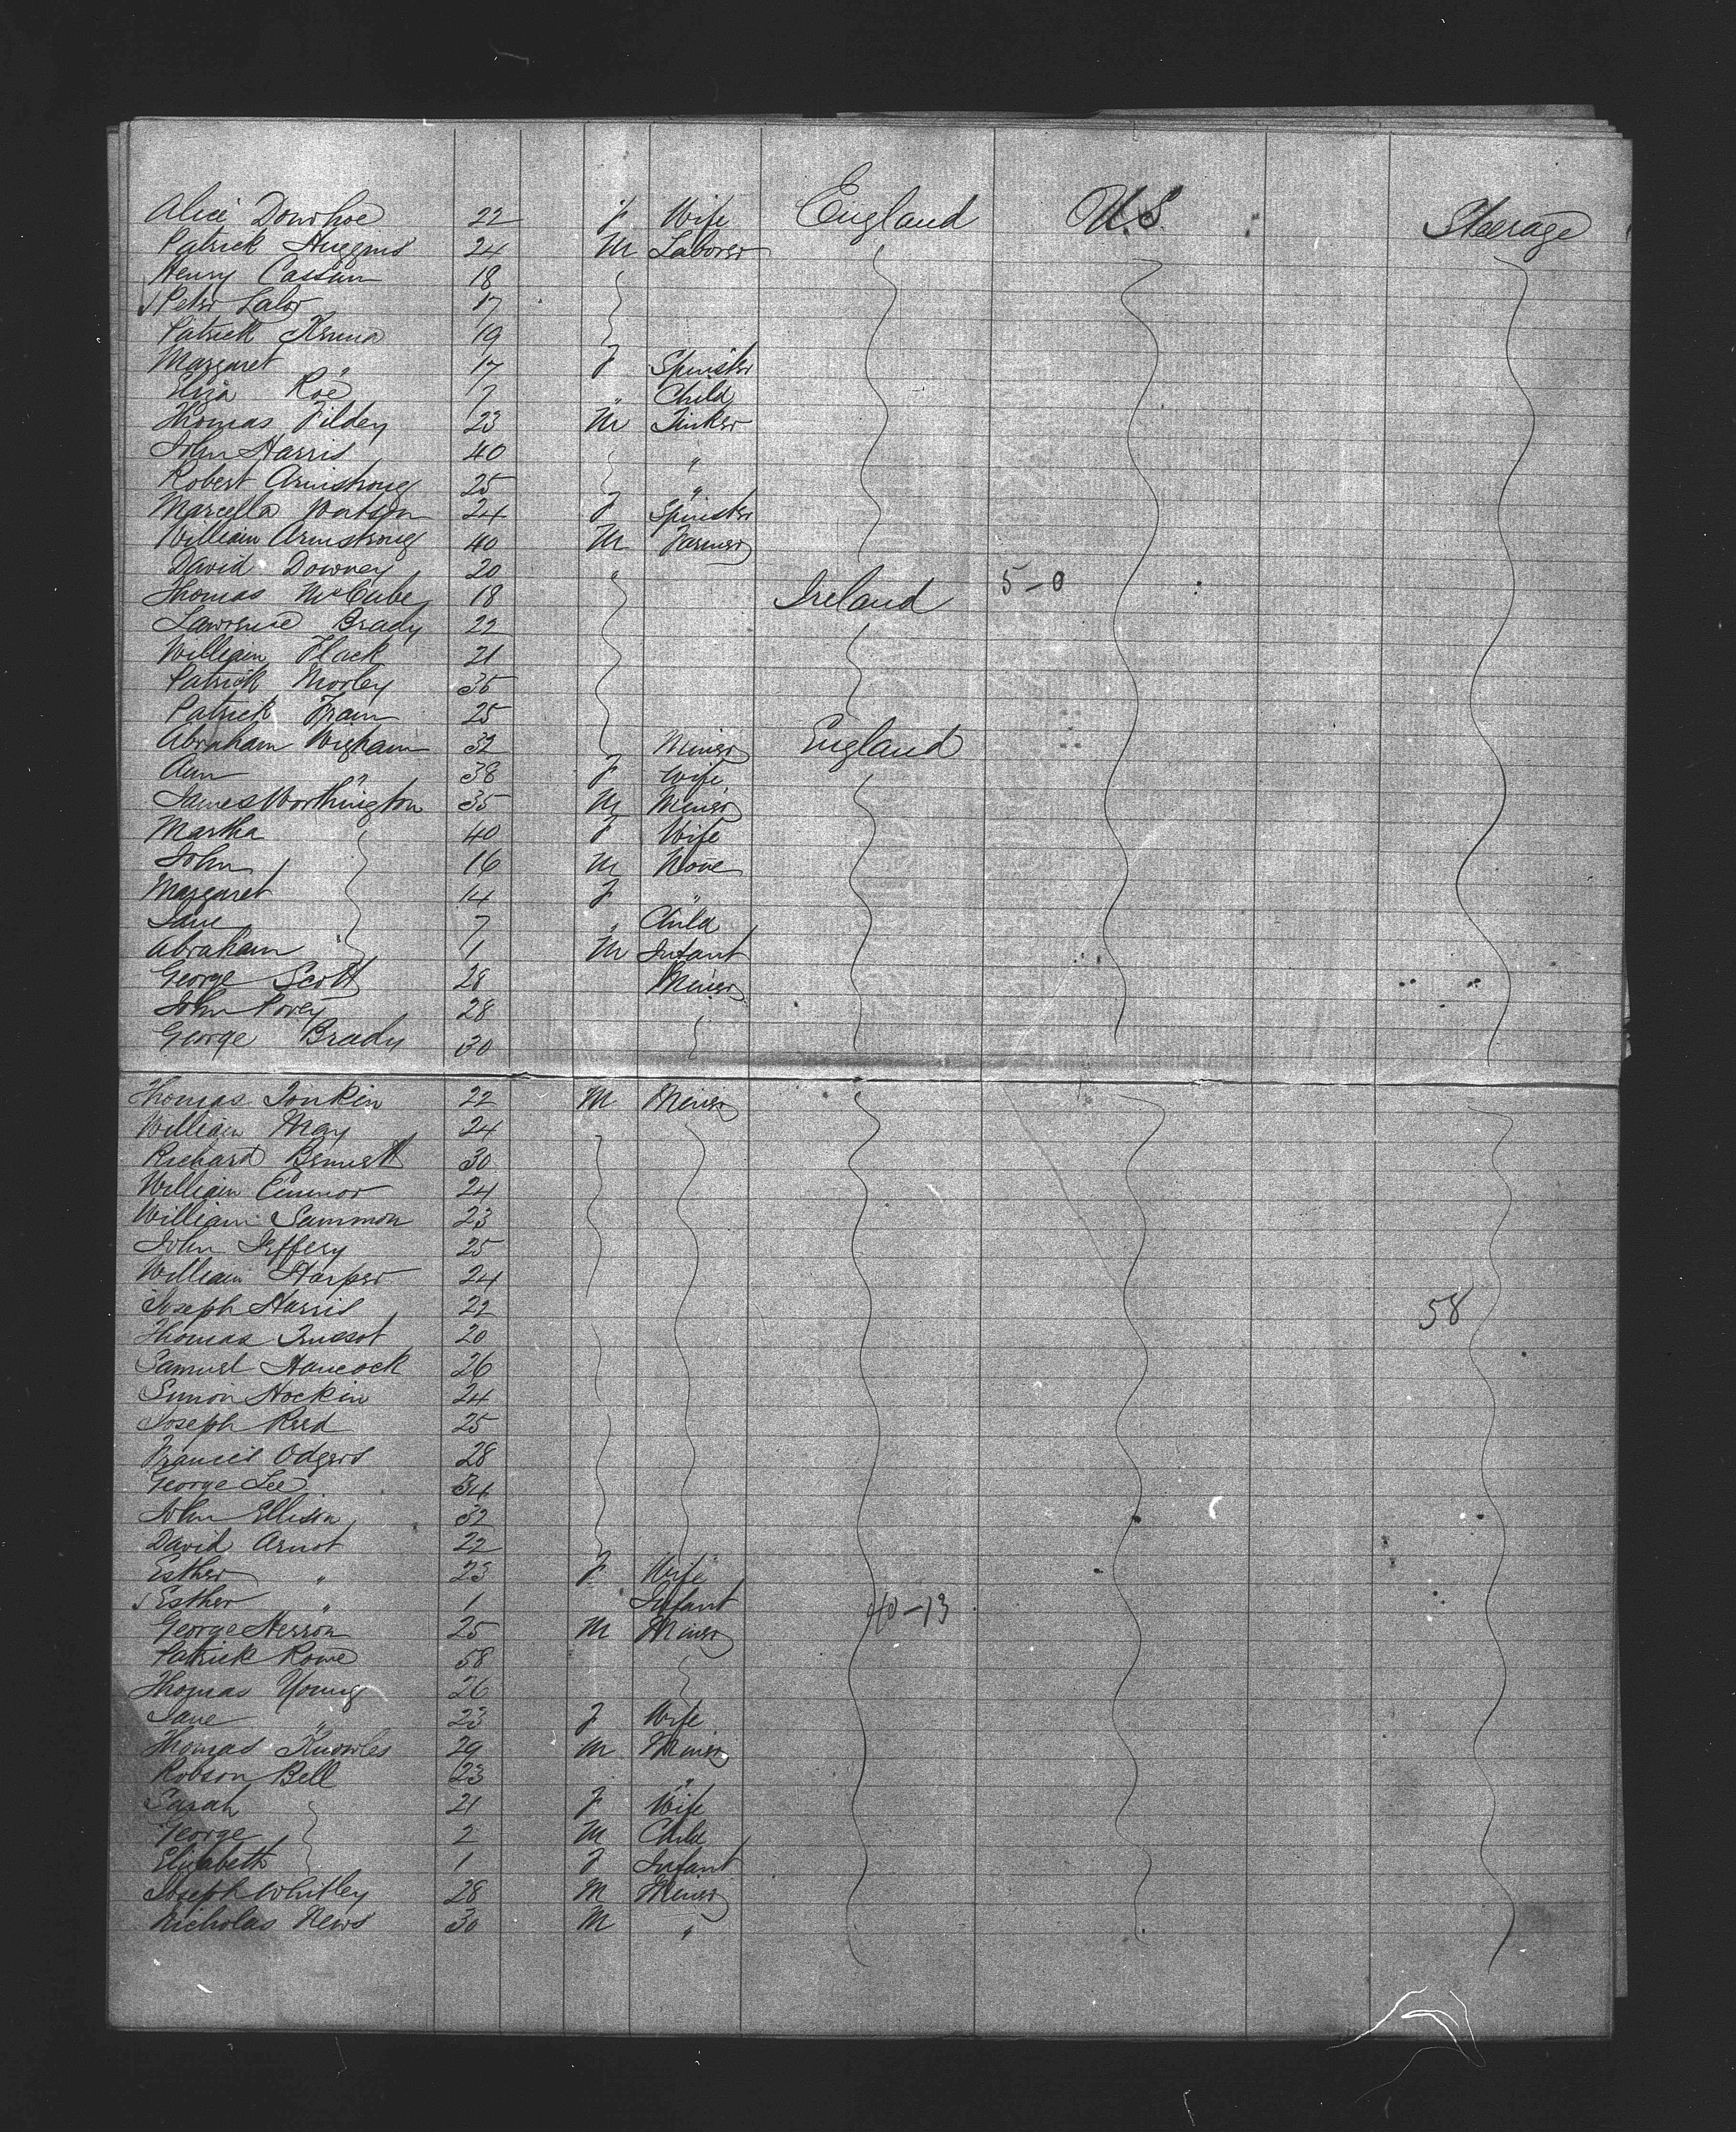 Alice Donohoe 22 f Wife England U.S. Steerage
Patrick Huggins 24 M Laborer
Henry Cassam 18
Peter Lalor 17
Patrick 19
Margaret " 17 f Spinster
Eliza Roe 7 " Child
Thomas Tilden 23 M Tinker
John Harris 40 "
Robert Armstrong 25 "
Marcella Watson 24 f Spinster
William Armstrong 40 M Farmer
David Downey 20 "
Thomas McCabe 18 Ireland 5-0
Lawrence Brady 22
William Flack 21
Patrick Morley 35
Patrick 25
Abraham Wigham 32 Miner England
Ann " 38 f Wife
James Worthington 35 M Miner
Martha 40 f Wife
John 16 M None
Margaret 14 f "
Jane 7 " Child
Abraham " 1 M Infant
George Scott 28 Miner
John Povey 28
George Brady 30
Thomas Tonkin 22 M Miner
William May 24
Richard Bennett 30
William Connor 24
William Sammon 23
John Jeffery 25
William Harper 24
Joseph Harris 22 58
Thomas 20
Samuel Hancock 26
Simon Hockin 24
Joseph Reed 25
Francis Odgers 28
George Lee 34
John Ellison 32
David Arnot 22
Esther " 23 f Wife
Esther " 1 " Infant 40-13
George Herron 25 M Miner
Patrick Rowe 58
Thomas Young 26
Jane " 23 f Wife
Thomas Knowles 29 M Miner
Robson Bell 23 "
Sarah 21 f Wife
George 2 M Child
Elizabeth 1 f Infant
Joseph Whitley 28 M Miner
Nicholas News 30 M "